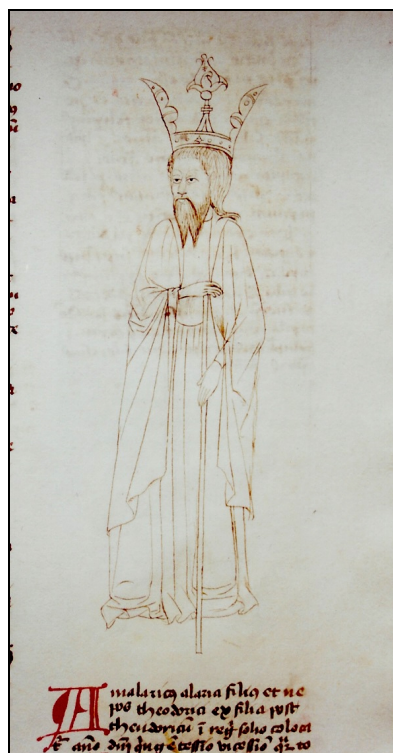 Amalaricꝯ alarici filiꝯ et ne
pos theodorici ex filia post
theudoricū ī regī solio coloca
t᷑ año dn̄i qn̄gētesīo vicesīo qr̄to